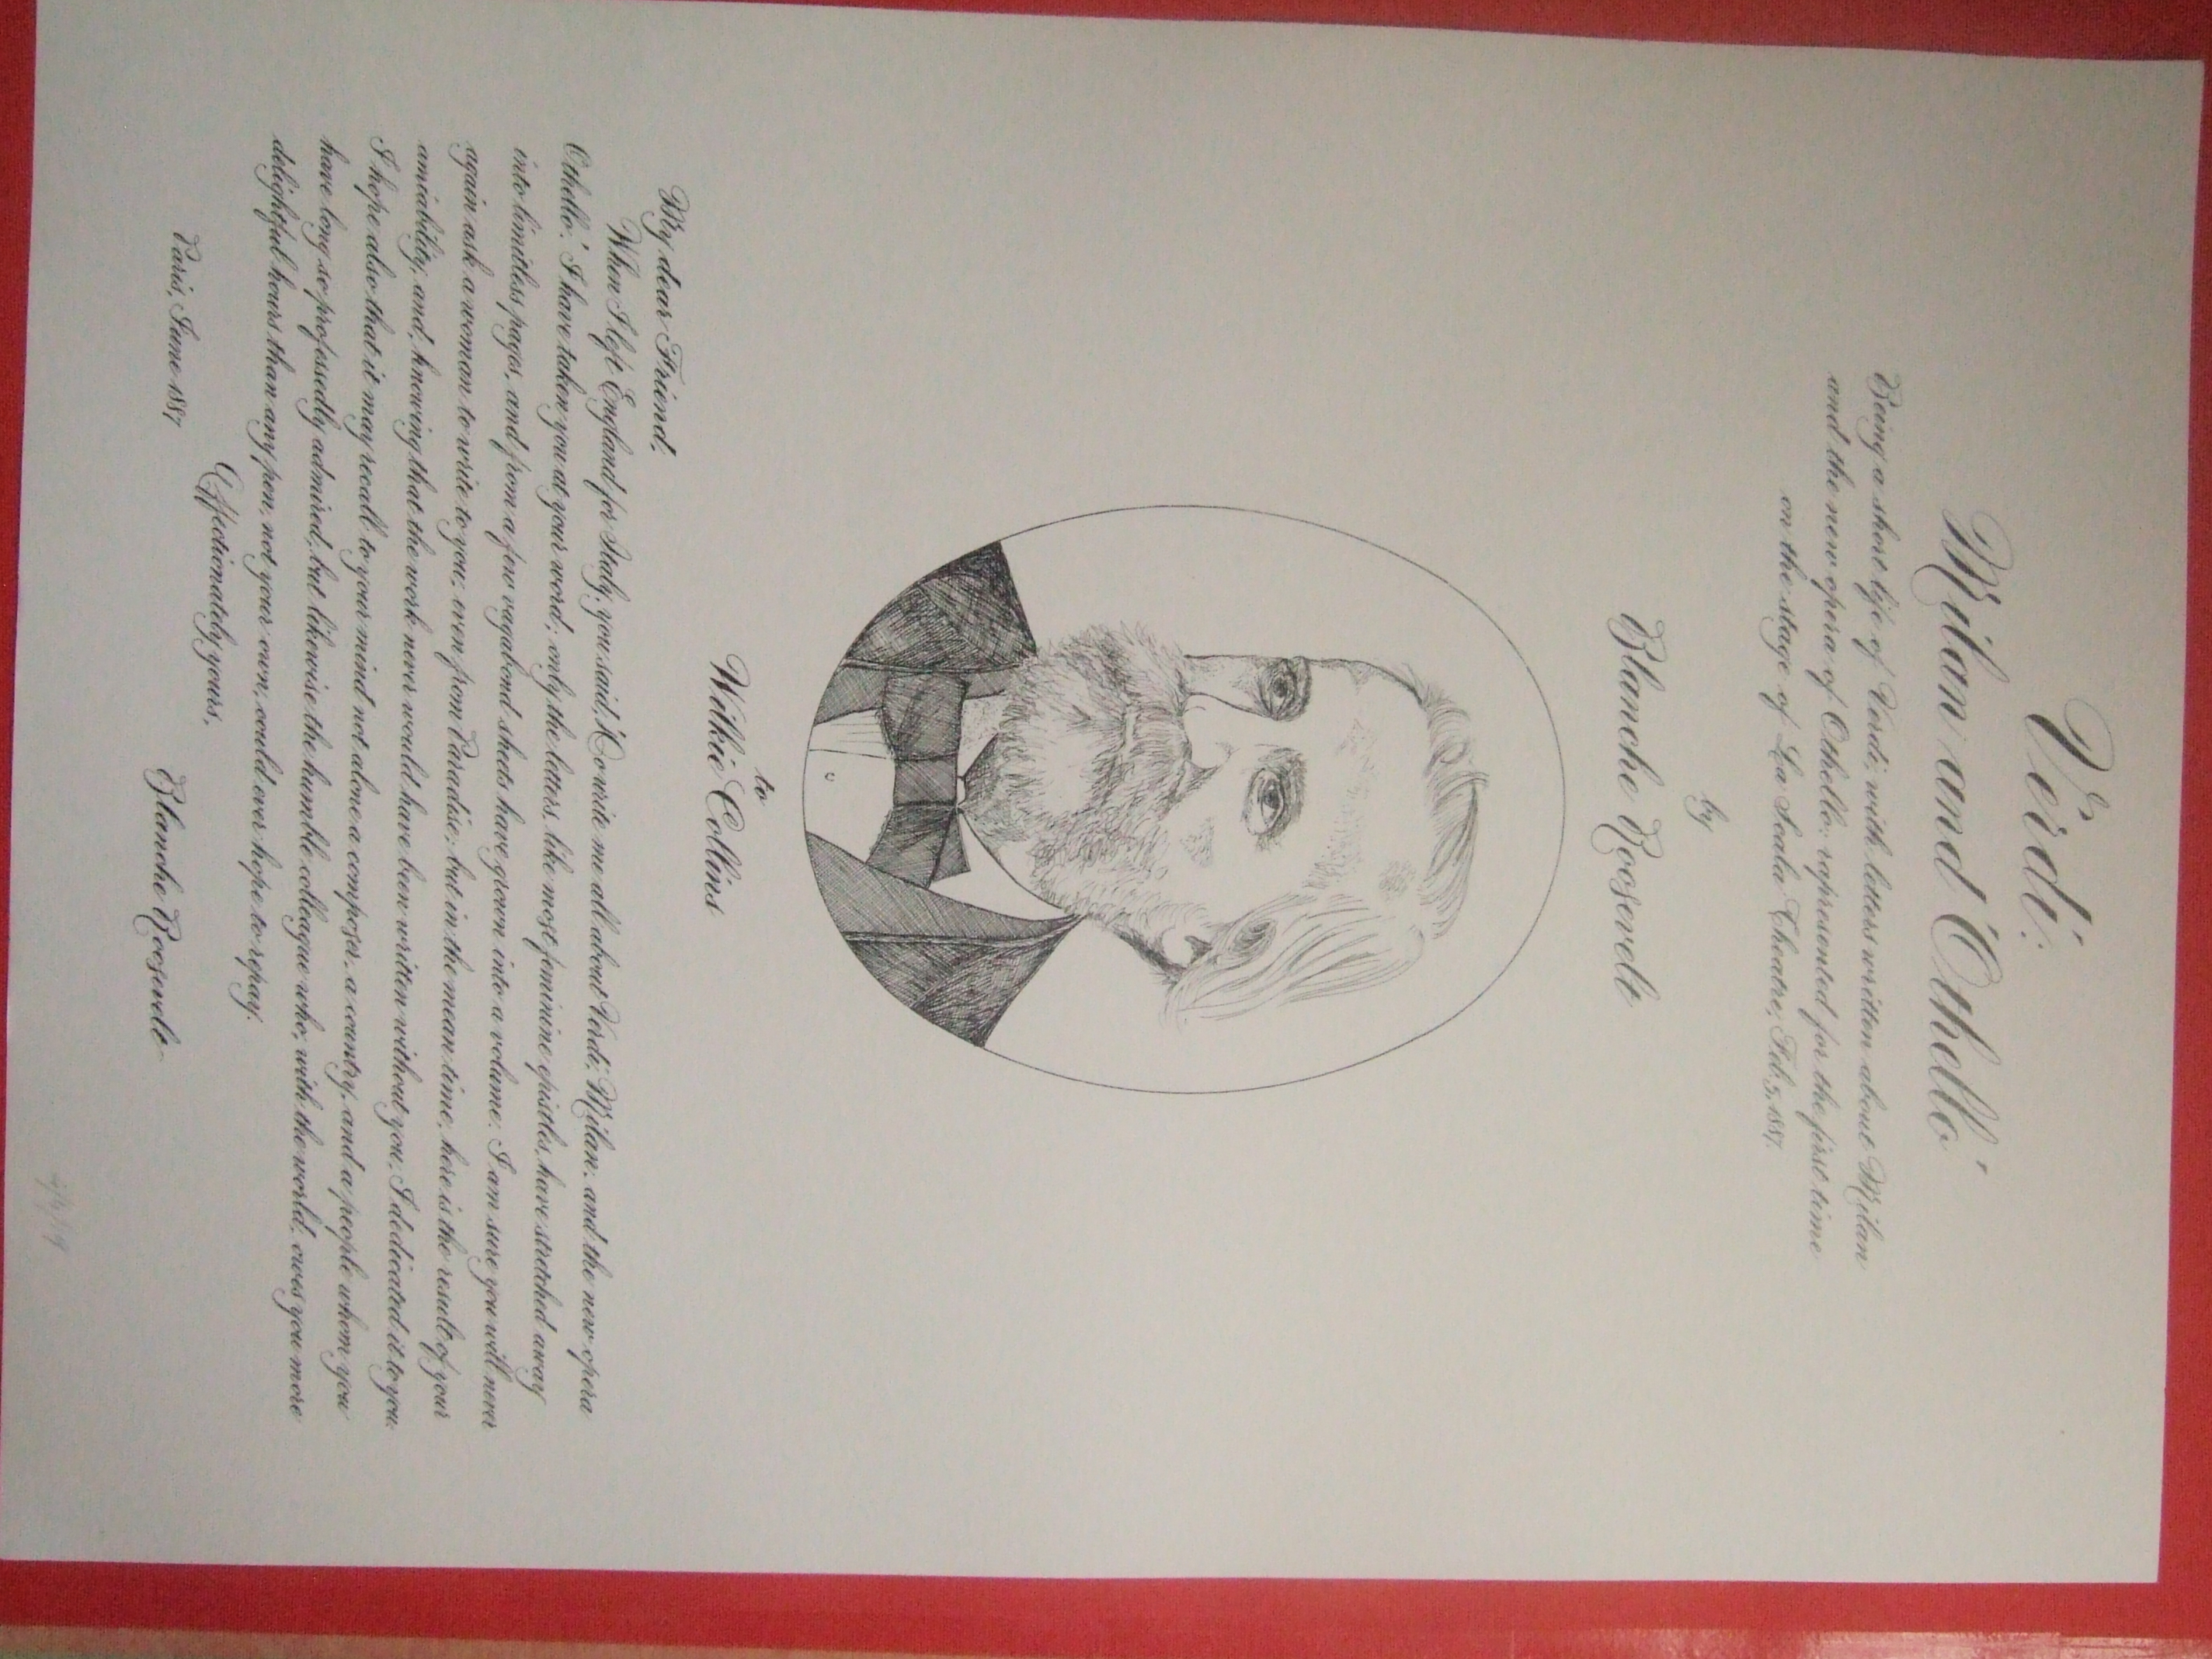 Verdi:
Milan and 'Othello'
Being a short life of Verdi, with letters written about Milan
and the new opera of Othello: represented for the first time
on the stage of La Scala Theatre, Feb. 5, 1887.
by
Blanche Roosevelt
to
Wilkie Collins
My dear Friend,
When I left England for Italy, you said, 'Do write me all about Verdi, Milan, and the new opera
Othello.' I have taken you at your word; only the letters, like most feminine epistles, have stretched away
into limitless pages, and from a few vagabond sheets have grown into a volume. I am sure you will never
again ask a woman to write to you, even from Paradise; but in the mean time, here is the result of your
amiability, and, knowing that the work never would have been written without you, I dedicated it to you.
I hope also that it may recall to your mind not alone a composer, a country, and a people whom you
have long so professedly admired, but likewise the humble colleague who, with the world, owes you more
delightful hours than any pen, not your own, could ever hope to repay.
Affectionately yours,
Paris, June 1887
Blanche Roosevelt